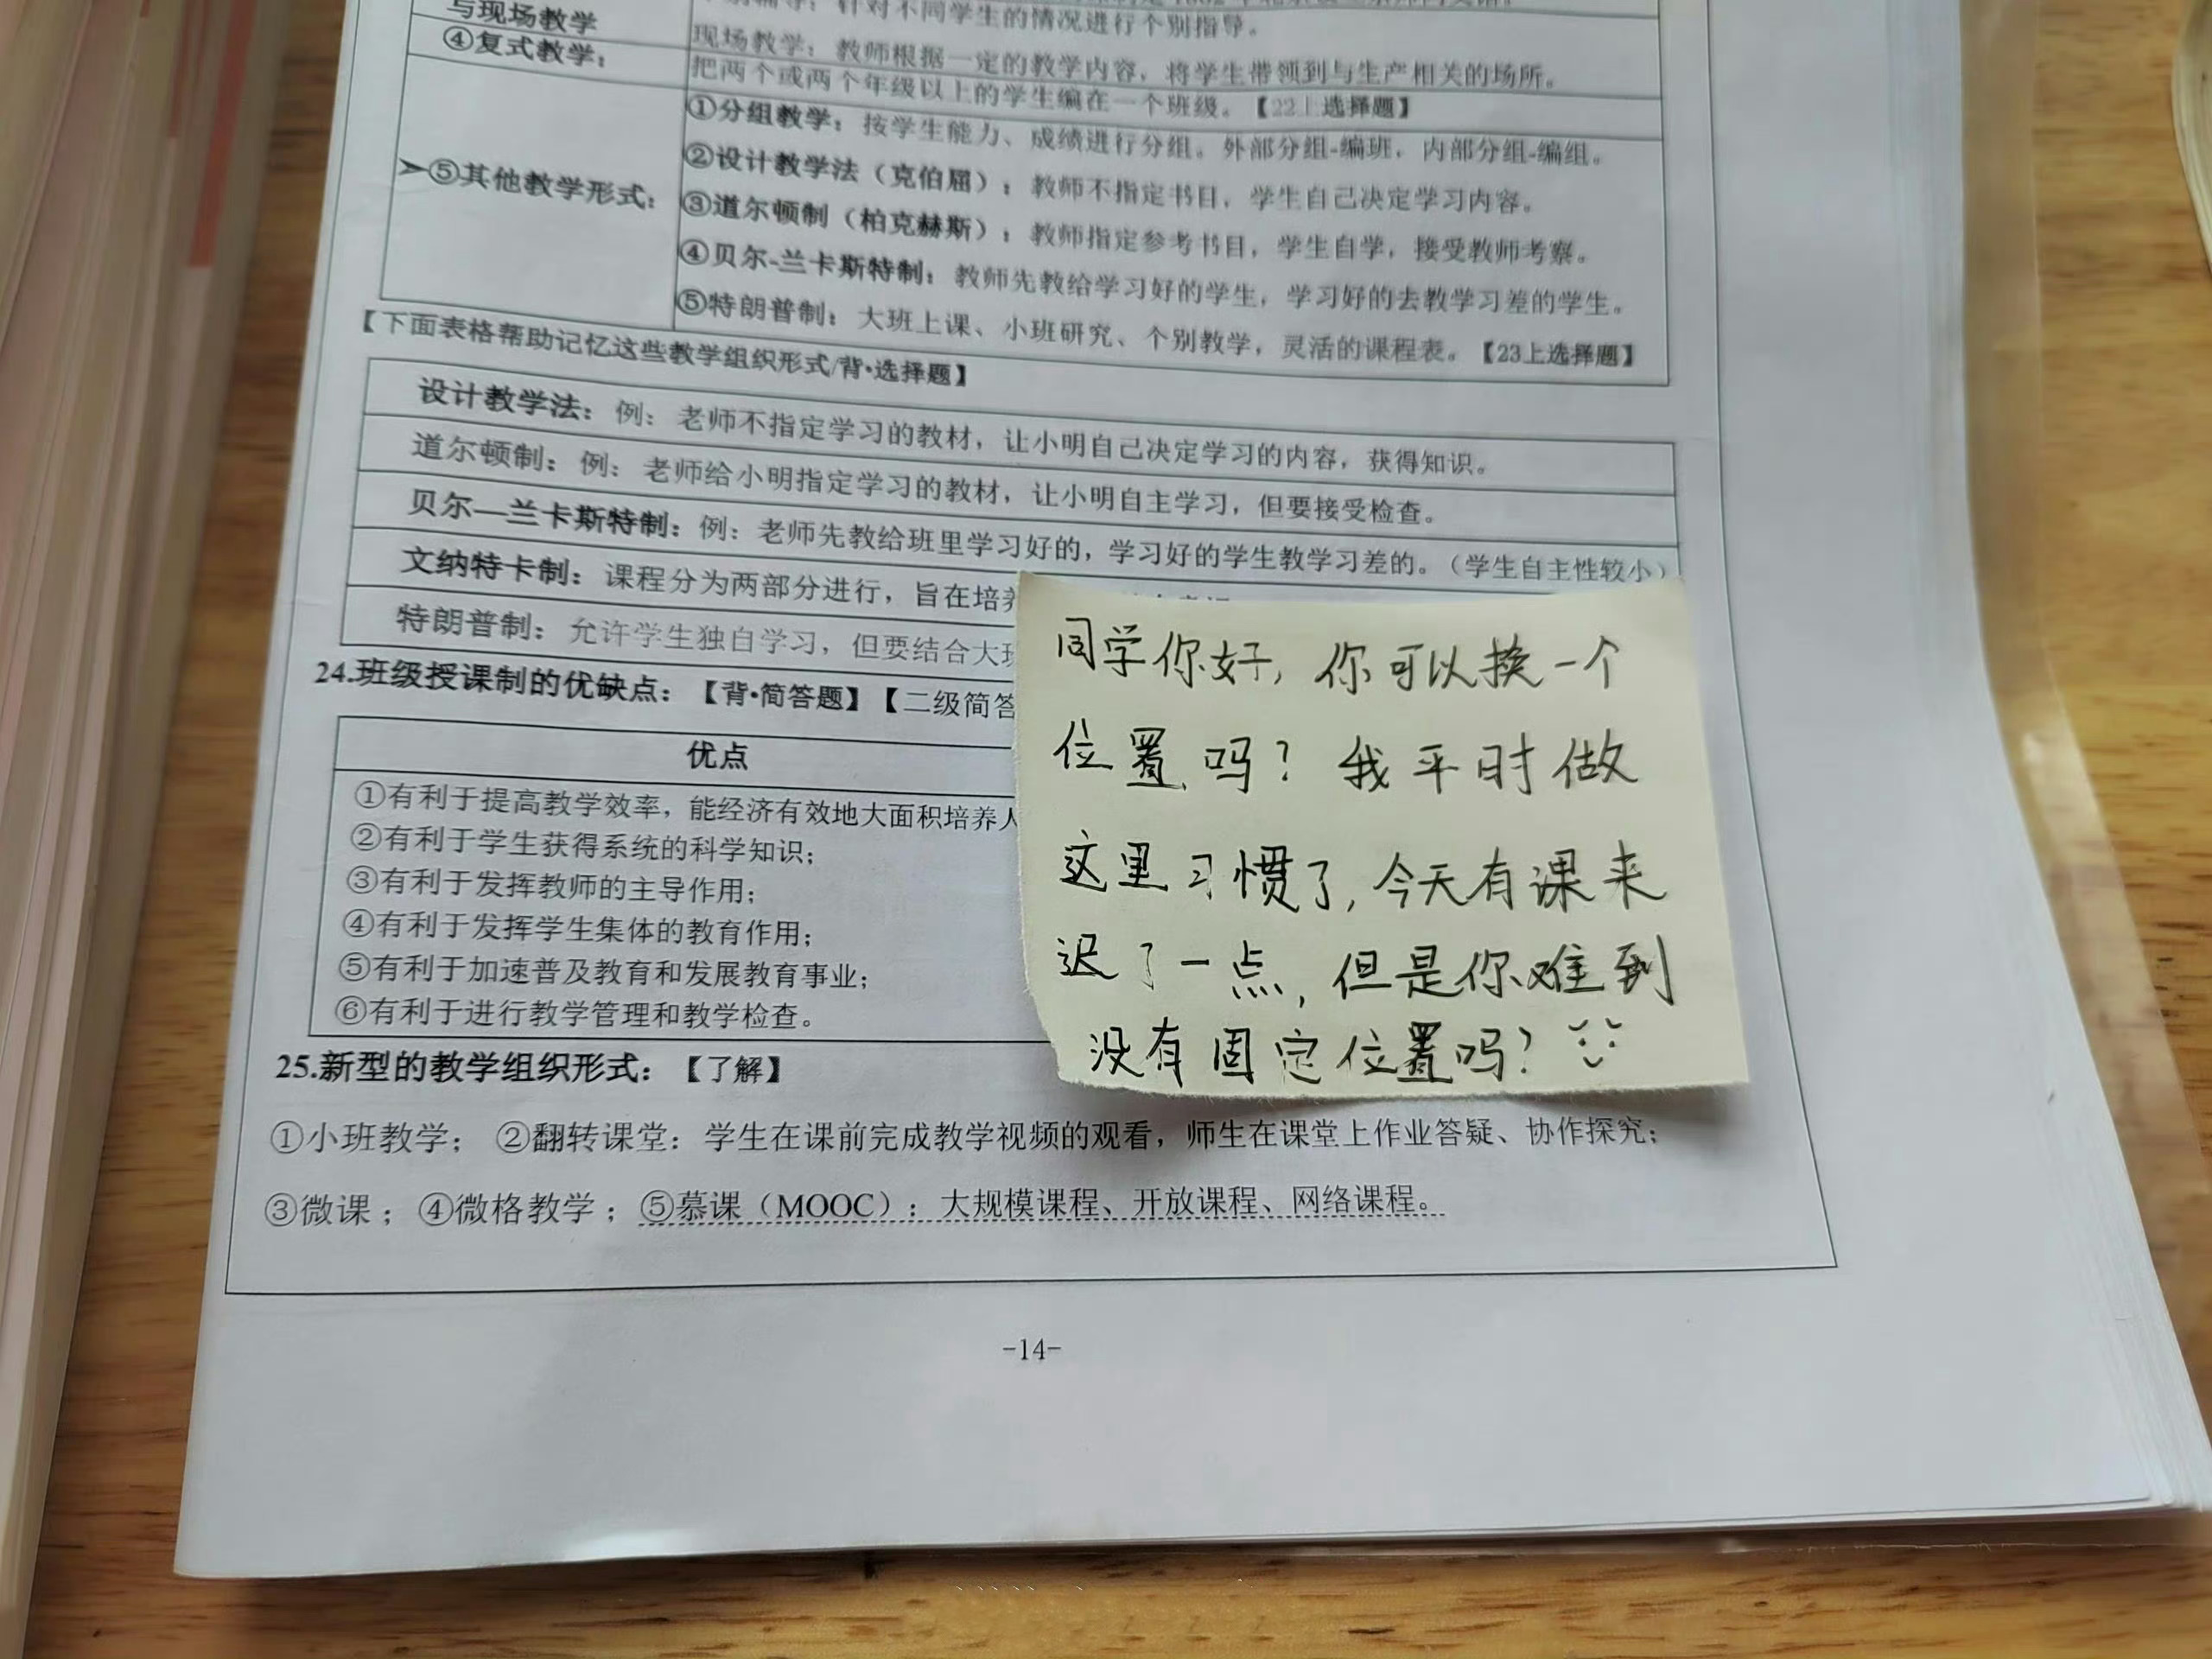 与现场教学
针对不同学生的情况进行个别指导。
现场教学：教师根据一定的教学内容，将学生带领到与生产相关的场所。
④复式教学：
把两个或两个年级以上的学生编在一个班级。【22上选择题】
➢⑤其他教学形式：
①分组教学：按学生能力、成绩进行分组。外部分组-编班，内部分组-编组。
②设计教学法（克伯屈）：教师不指定书目，学生自己决定学习内容。
③道尔顿制（柏克赫斯）：教师指定参考书目，学生自学，接受教师考察。
④贝尔-兰卡斯特制：教师先教给学习好的学生，学习好的去教学习差的学生。
⑤特朗普制：大班上课、小班研究、个别教学，灵活的课程表。【23上选择题】
【下面表格帮助记忆这些教学组织形式/背•选择题】
设计教学法：例：老师不指定学习的教材，让小明自己决定学习的内容，获得知识。
道尔顿制：例：老师给小明指定学习的教材，让小明自主学习，但要接受检查。
贝尔—兰卡斯特制：例：老师先教给班里学习好的，学习好的学生教学习差的。（学生自主性较小）
文纳特卡制：课程分为两部分进行，旨在培养
特朗普制：允许学生独自学习，但要结合大班
24.班级授课制的优缺点：【背•简答题】【二级简答
优点
①有利于提高教学效率，能经济有效地大面积培养人
②有利于学生获得系统的科学知识；
③有利于发挥教师的主导作用；
④有利于发挥学生集体的教育作用；
⑤有利于加速普及教育和发展教育事业；
⑥有利于进行教学管理和教学检查。
同学你好，你可以换一个
位置吗？我平时做
这里习惯了，今天有课来
迟了一点，但是你难到
没有固定位置吗？
25.新型的教学组织形式：【了解】
①小班教学； ②翻转课堂：学生在课前完成教学视频的观看，师生在课堂上作业答疑、协作探究；
③微课；④微格教学；⑤慕课（MOOC）：大规模课程、开放课程、网络课程。
-14-